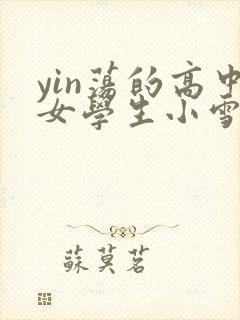 yin蕩的高中
女學生小雪
蘇莫茗